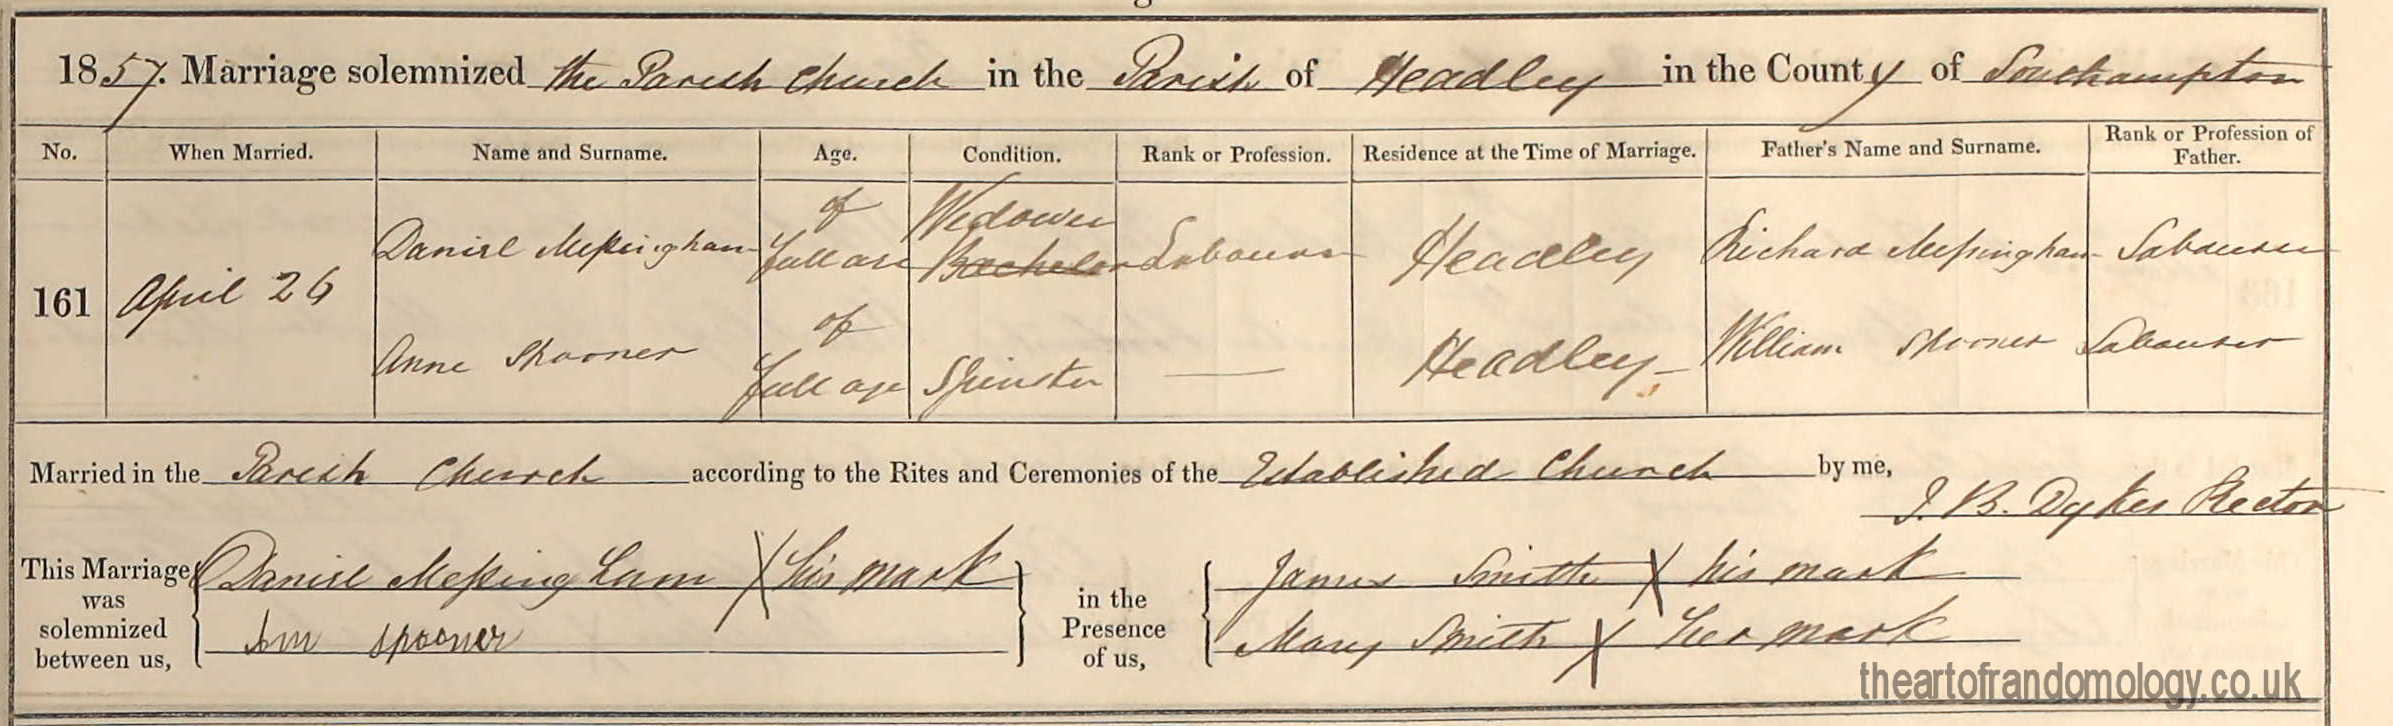 1857. Marriage solemnized the Parish Church in the Parish of Headley in the County of Southampton
No. When Married. Name and Surname. Age. Condition. Rank or Profession. Residence at the Time of Marriage. Father's Name and Surname. Rank or Profession of Father.
161 April 26
Daniel Messingham of full age Widower Bachelor Labourer Headley Richard Messingham Labourer
Anne Spooner of full age Spinster — Headley William Spooner Labourer
Married in the Parish Church according to the Rites and Ceremonies of the Established Church by me,
J. B. Dykes Rector
This Marriage was solemnized between us,
Daniel Messingham X his mark
Ann spooner
in the Presence of us,
James Smith X his mark
Mary Smith X her mark
theartofrandomology.co.uk